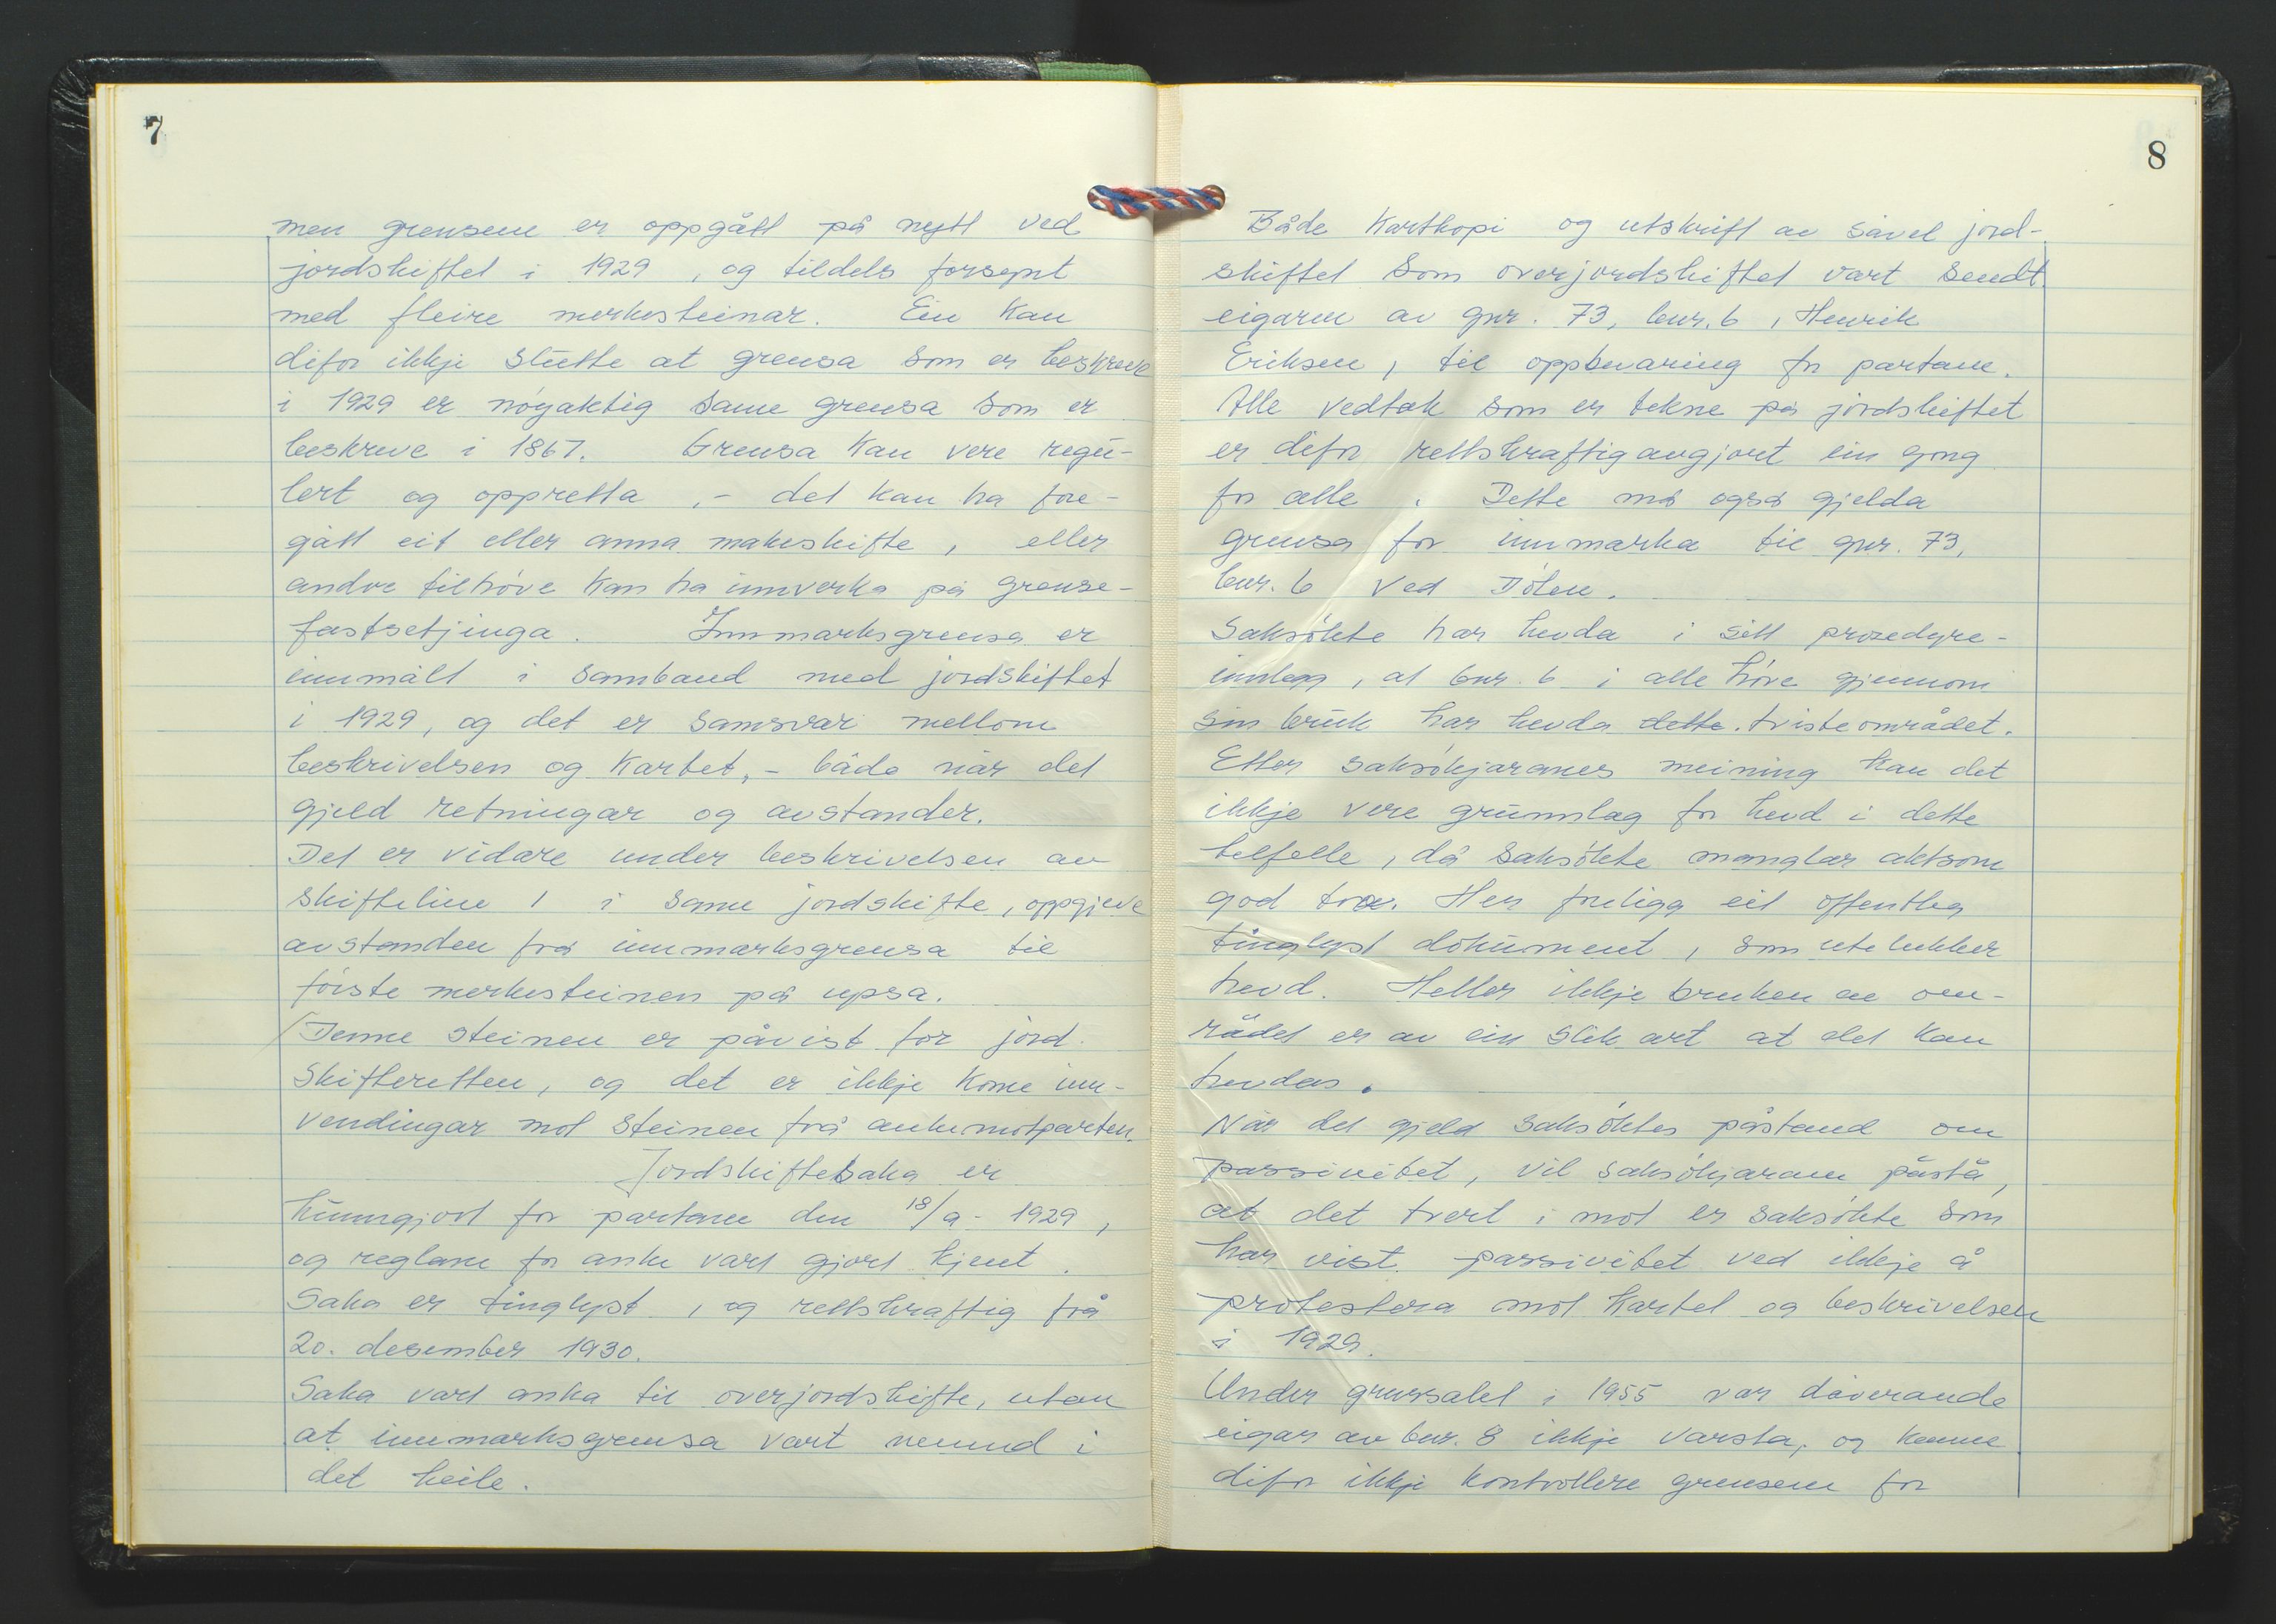 7
men grensene er oppgått på nytt ved
jordskiftet i 1929, og tildels forsynt
med fleire merkesteinar. Ein kan
difor ikkje slutte at grensa som er beskreve
i 1929 er nøyaktig same grensa som er
beskreve i 1867. Grensa kan vere regu-
lert og oppretta, - det kan ha fore-
gått eit eller anna makeskifte, eller
andre tilhøve kan ha innverka på grense-
fastsetjinga. Innmarksgrensa er
innmålt i samband med jordskiftet
i 1929, og det er samsvar mellom
beskrivelsen og kartet, - både når det
gjeld retningar og avstander.
Det er vidare under beskrivelsen av
skifteline 1 i same jordskifte, oppgjeve
avstanden frå innmarksgrensa til
første merkesteinen på upsa.
Denne steinen er påvist for jord-
skifteretten, og det er ikkje kome inn-
vendingar mot steinen frå ankemotparten.
Jordskiftesaka er
kunngjort for partane den 18/9 - 1929,
og reglane for anke vart gjort kjent.
Saka er tinglyst, og rettskraftig frå
20. desember 1930.
Saka vart anka til overjordskifte, utan
at innmarksgrensa vart nemnd i
det heile.
8
Både kartkopi og utskrift av såvel jord-
skiftet som overjordskiftet vart sendt
eigaren av gnr. 73, bnr. 6, Henrik
Eriksen, til oppbevaring for partane.
Alle vedtak som er tekne på jordskiftet
er difor rettskraftig avgjort ein gong
for alle. Dette må også gjelda
grensa for innmarka til gnr. 73,
bnr. 6 ved Dølen.
Saksøkte har hevda i sitt prosedyre-
innlegg, at bnr. 6 i alle høve gjennom
sin bruk har hevda dette tvisteområdet.
Etter saksøkjaranes meining kan det
ikkje vere grunnlag for hevd i dette
telfelle, då saksøkte manglar aktsom
god tru. Her freligg eit offentleg
tinglyst dokument, som utelukker
hevd. Heller ikkje bruken av om-
rådet er av ein slik art at det kan
hevdas.
Når det gjeld saksøktes påstand om
passivitet, vil saksøkjarane påstå,
at det tvert i mot er saksøkte som
har vist passivitet ved ikkje å
protestera mot kartet og beskrivelsen
i 1929.
Under grussalet i 1955 var dåverande
eigar av bnr. 8 ikkje varsla, og kunne
difor ikkje kontrollere grensene for